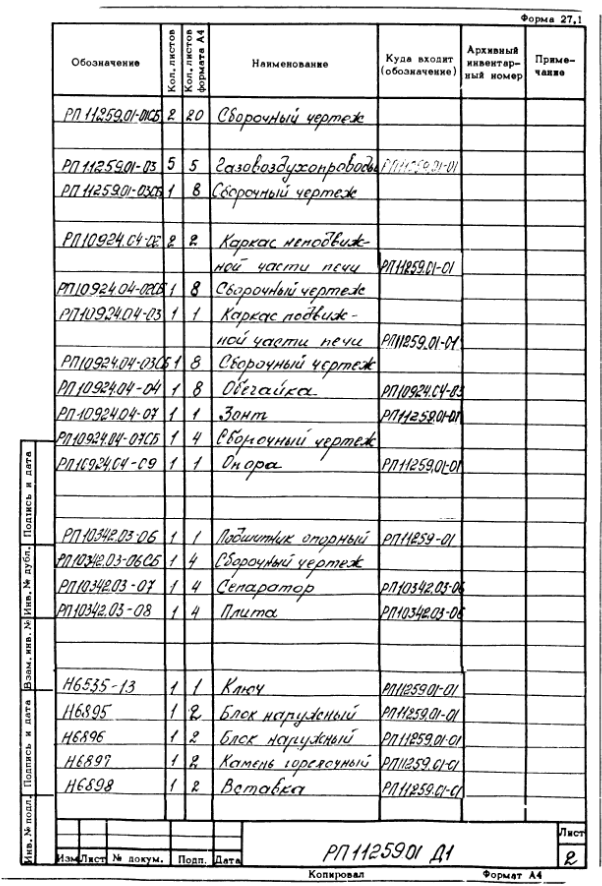 Форма 27,1
Обозначение Кол. листов Кол. листов формата А4 Наименование Куда входит (обозначение) Архивный инвентар- ный номер Приме- чание
РП 11259.01-01СБ 2 20 Сборочный чертеж
РП 11259.01-03 5 5 Газовоздухопроводы РП11259.01-01
РП 11259.01-03СБ 1 8 Сборочный чертеж
РП10924.04-02 2 2 Каркас неподвиж-
ной части печи РП11259.01-01
РП10924.04-02СБ 1 8 Сборочный чертеж
РП10924.04-03 1 1 Каркас подвиж-
ной части печи РП11259.01-01
РП10924.04-03СБ 1 8 Сборочный чертеж
РП10924.04-04 1 8 Обечайка РП10924.04-03
РП10924.04-07 1 1 Зонт РП11259.01-01
РП10924.04-07СБ 1 4 Сборочный чертеж
РП10924.04-09 1 1 Опора РП11259.01-01
РП10342.03-06 1 1 Подшипник опорный РП11259-01
РП10342.03-06СБ 1 4 Сборочный чертеж
РП10342.03-07 1 4 Сепаратор РП10342.03-06
РП10342.03-08 1 4 Плита РП10342.03-06
Н6535-13 1 1 Ключ РП11259.01-01
Н6895 1 2 Блок наружный РП11259.01-01
Н6896 1 2 Блок наружный РП11259.01-01
Н6897 1 2 Камень горелочный РП11259.01-01
Н6898 1 2 Вставка РП11259.01-01
Инв. № подл. Подпись и дата Взам. инв. № Инв. № дубл. Подпись и дата
Изм Лист № докум. Подп. Дата
РП11259.01 Д1
Лист
2
Копировал Формат А4